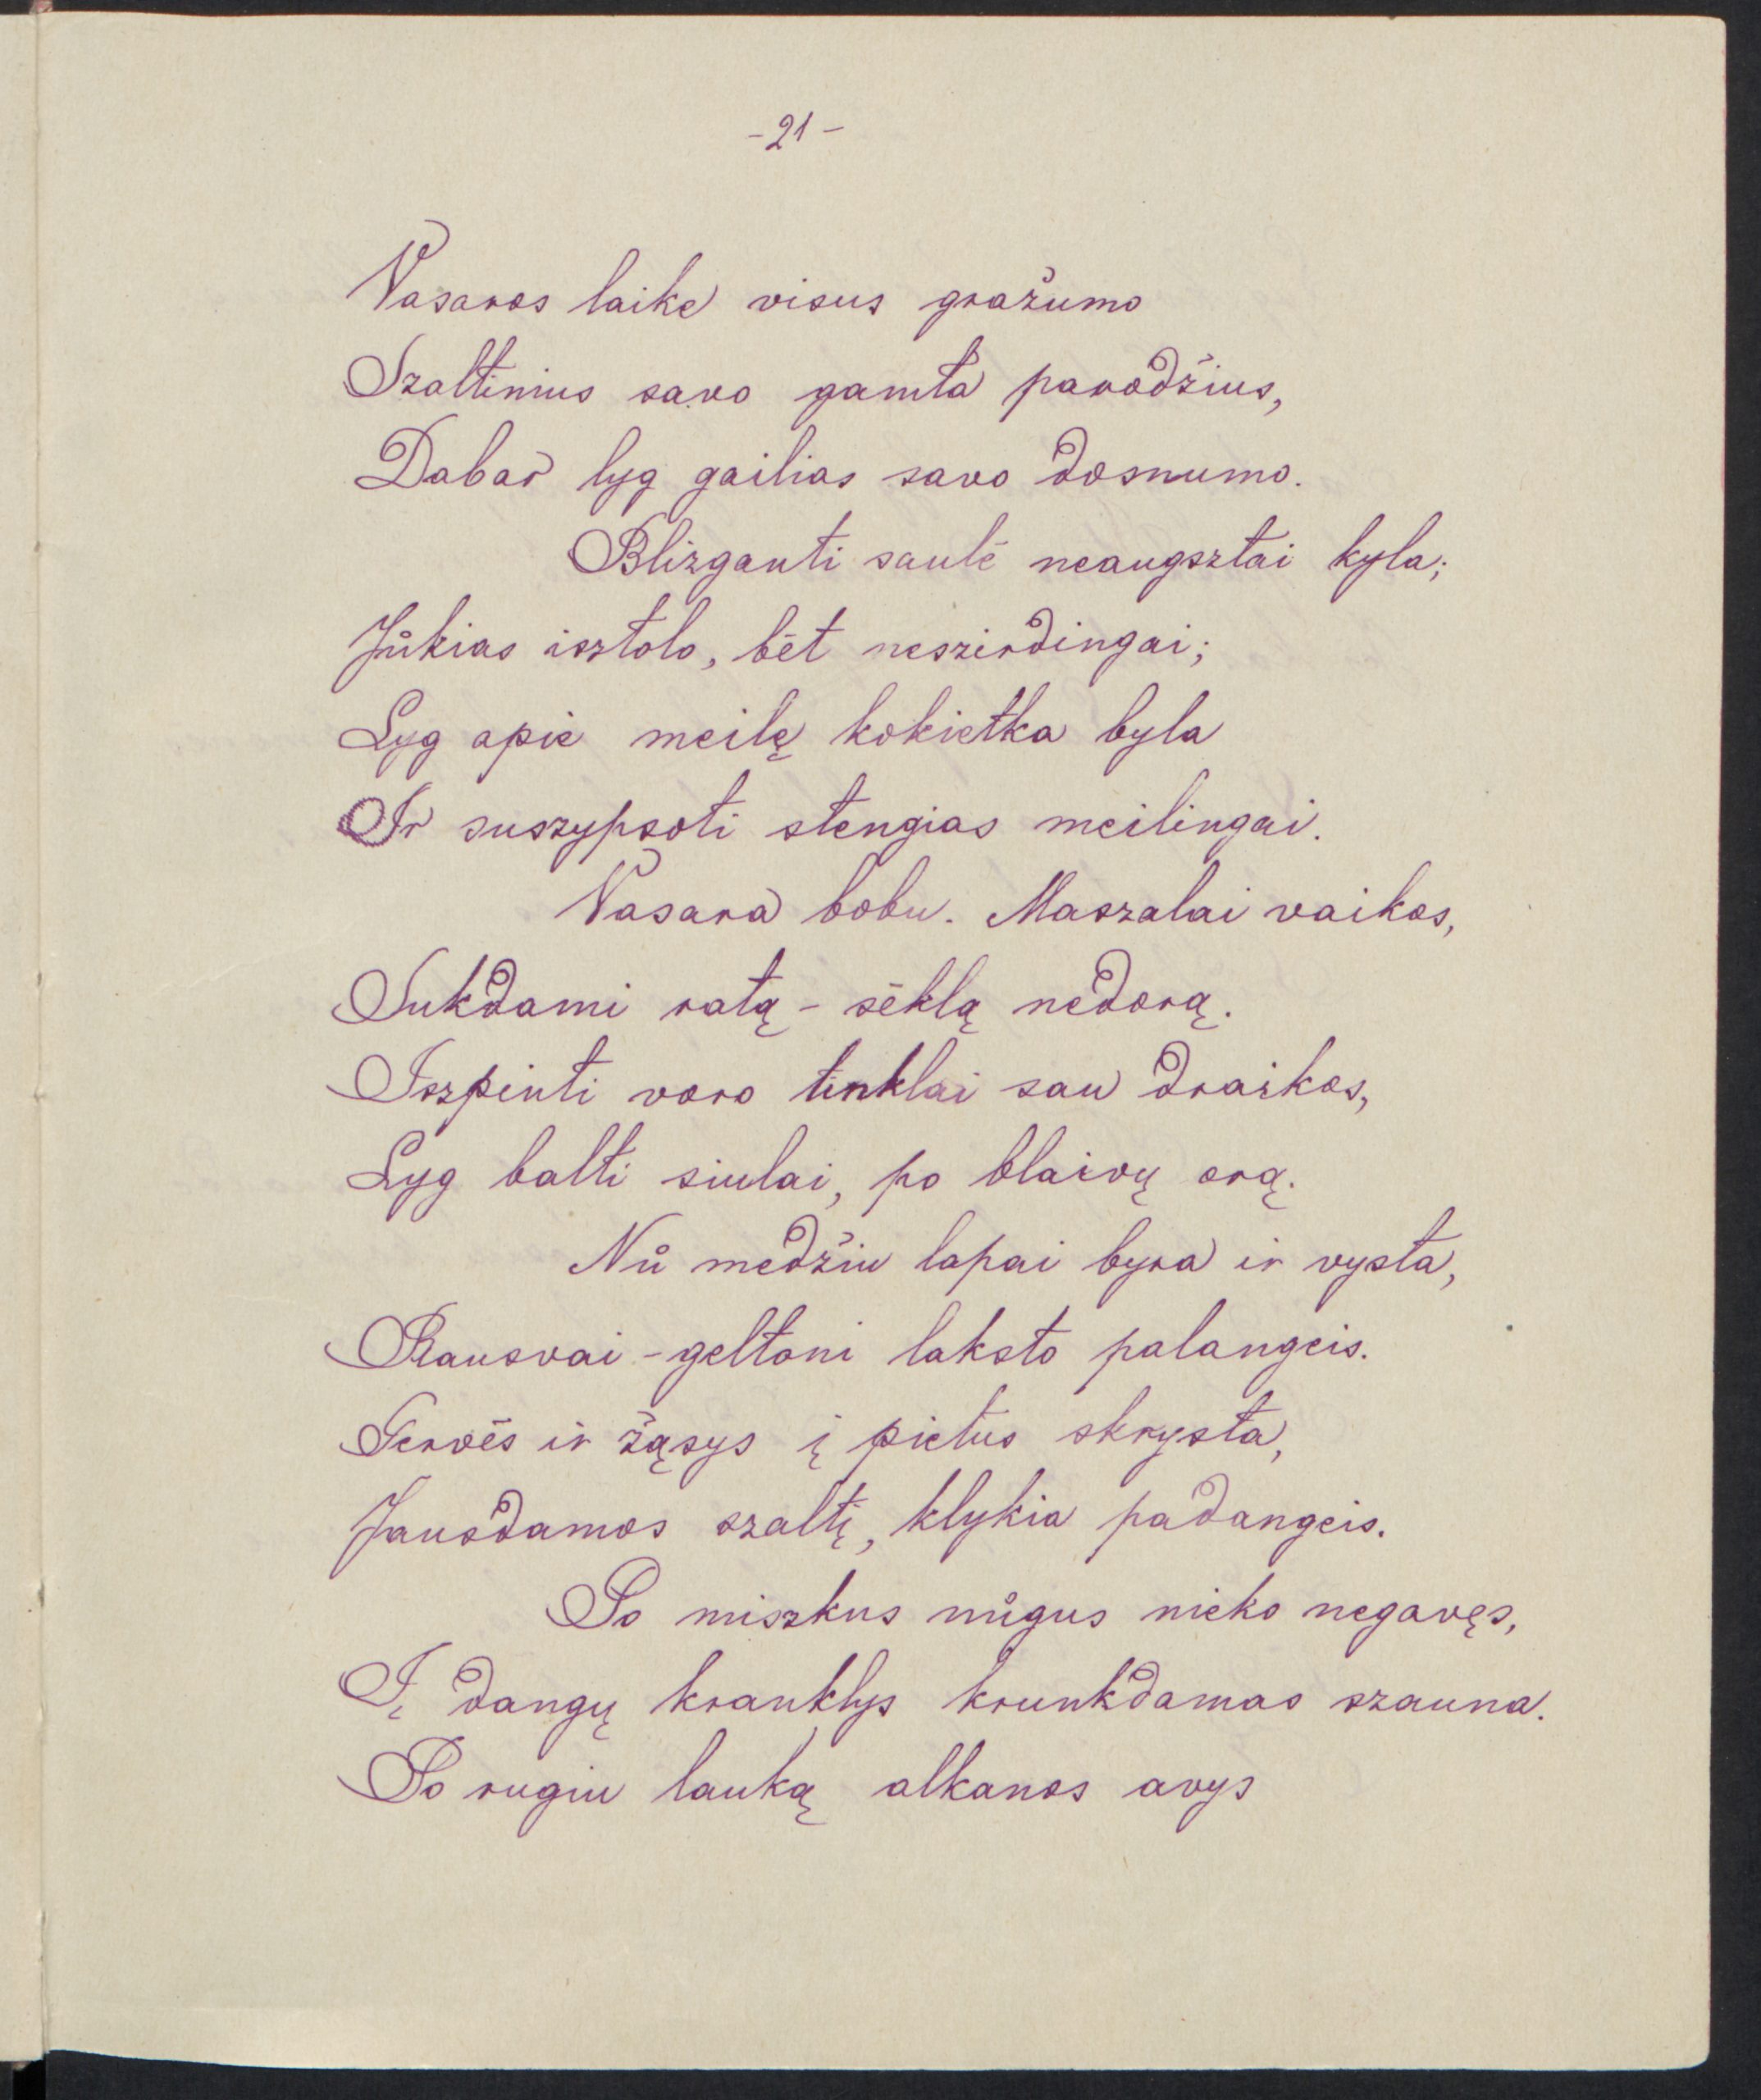 - 21 -
Vasaros laike visus gražumo
Szaltinius savo gamta parodžius,
Dabar lyg gailias savo dosnumo.
Blizganti saulė neaugsztai kyla;
Jůkias isztolo, bėt neszirdingai;
Lyg apie meilę kokietka byla
Ir suszypsoti stengias meilingai.
Vasara bobu. Maszalai vaikos,
Sukdami ratą - sėklą nedorą.
Iszpinti voro tinklai sau draikos,
Lyg balti siulai, po blaivų orą.
Nů medžiu lapai byra ir vysta,
Rausvai-geltoni laksto palangeis.
Gervės ir žąsys į pietus skrysta,
Jausdamos szaltį, klykia padangeis.
Po miszkus nůgus nieko negavęs,
Į dangų kranklys krunkdamas szauna.
Po rugiu lauką alkanos avys